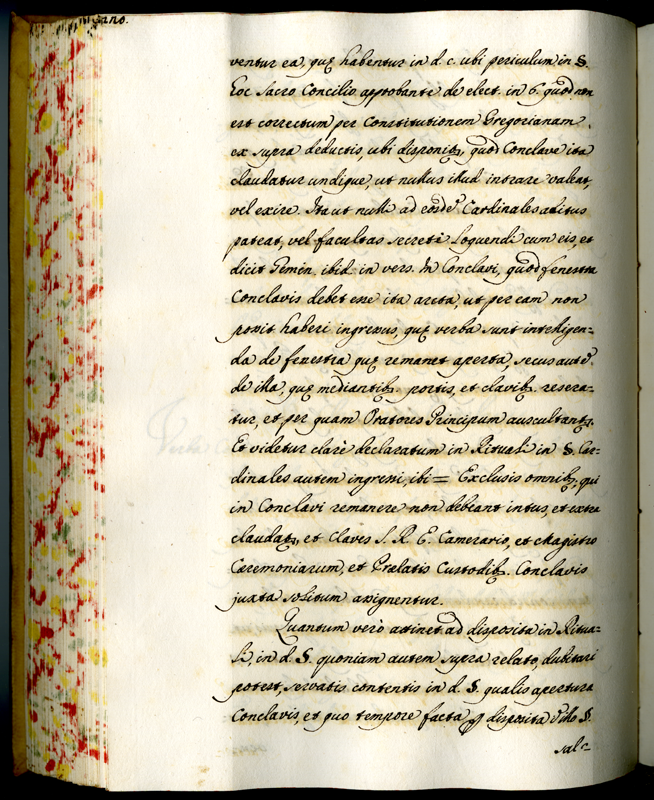 ventur ea, quę habentur in d. c. ubi periculum in §.
hoc sacro Concilio approbante de elect. in 6. quod non
est correctum per Constitutionem Gregorianam.
ex supra deductis, ubi disponitr, quod Conclave ita
claudatur undique, ut nullus illud intrare valeat,
vel exire. Ita ut nulli ad eosdẽ Cardinales aditus
pateat, vel facultas secretè loquendi cum eis, et
dicit Gemin. ibid. in vers. In Conclavi, quod fenestra
Conclavis debet esse ita arcta, ut per eam non
possit haberi ingressus, quę verba sunt intelligen=
da de fenestra quę remanet aperta, secus autẽ
de illa, quę mediantib. portis, et clavib. resera=
tur, et per quam Oratores Principum auscultantr.
Et videtur clarè declaratum in Rituali in §. Car=
dinales autem ingressi, ibi = Exclusis omnib, qui
in Conclavi remanere non debeant intus, et extra
claudatr, et claves S. R. E. Camerario, et Magistro
Cæremoniarum, et Prælatis Custodib. Conclavis
juxta solitum assignentur.
Quantum verò attinet ad disposita in Ritua=
li, in d. §. quoniam autem supra relato, dubitari
potest, servatis contentis in d. §. qualis apertura
Conclavis, et quo tempore facta disposita illo §.
sal=